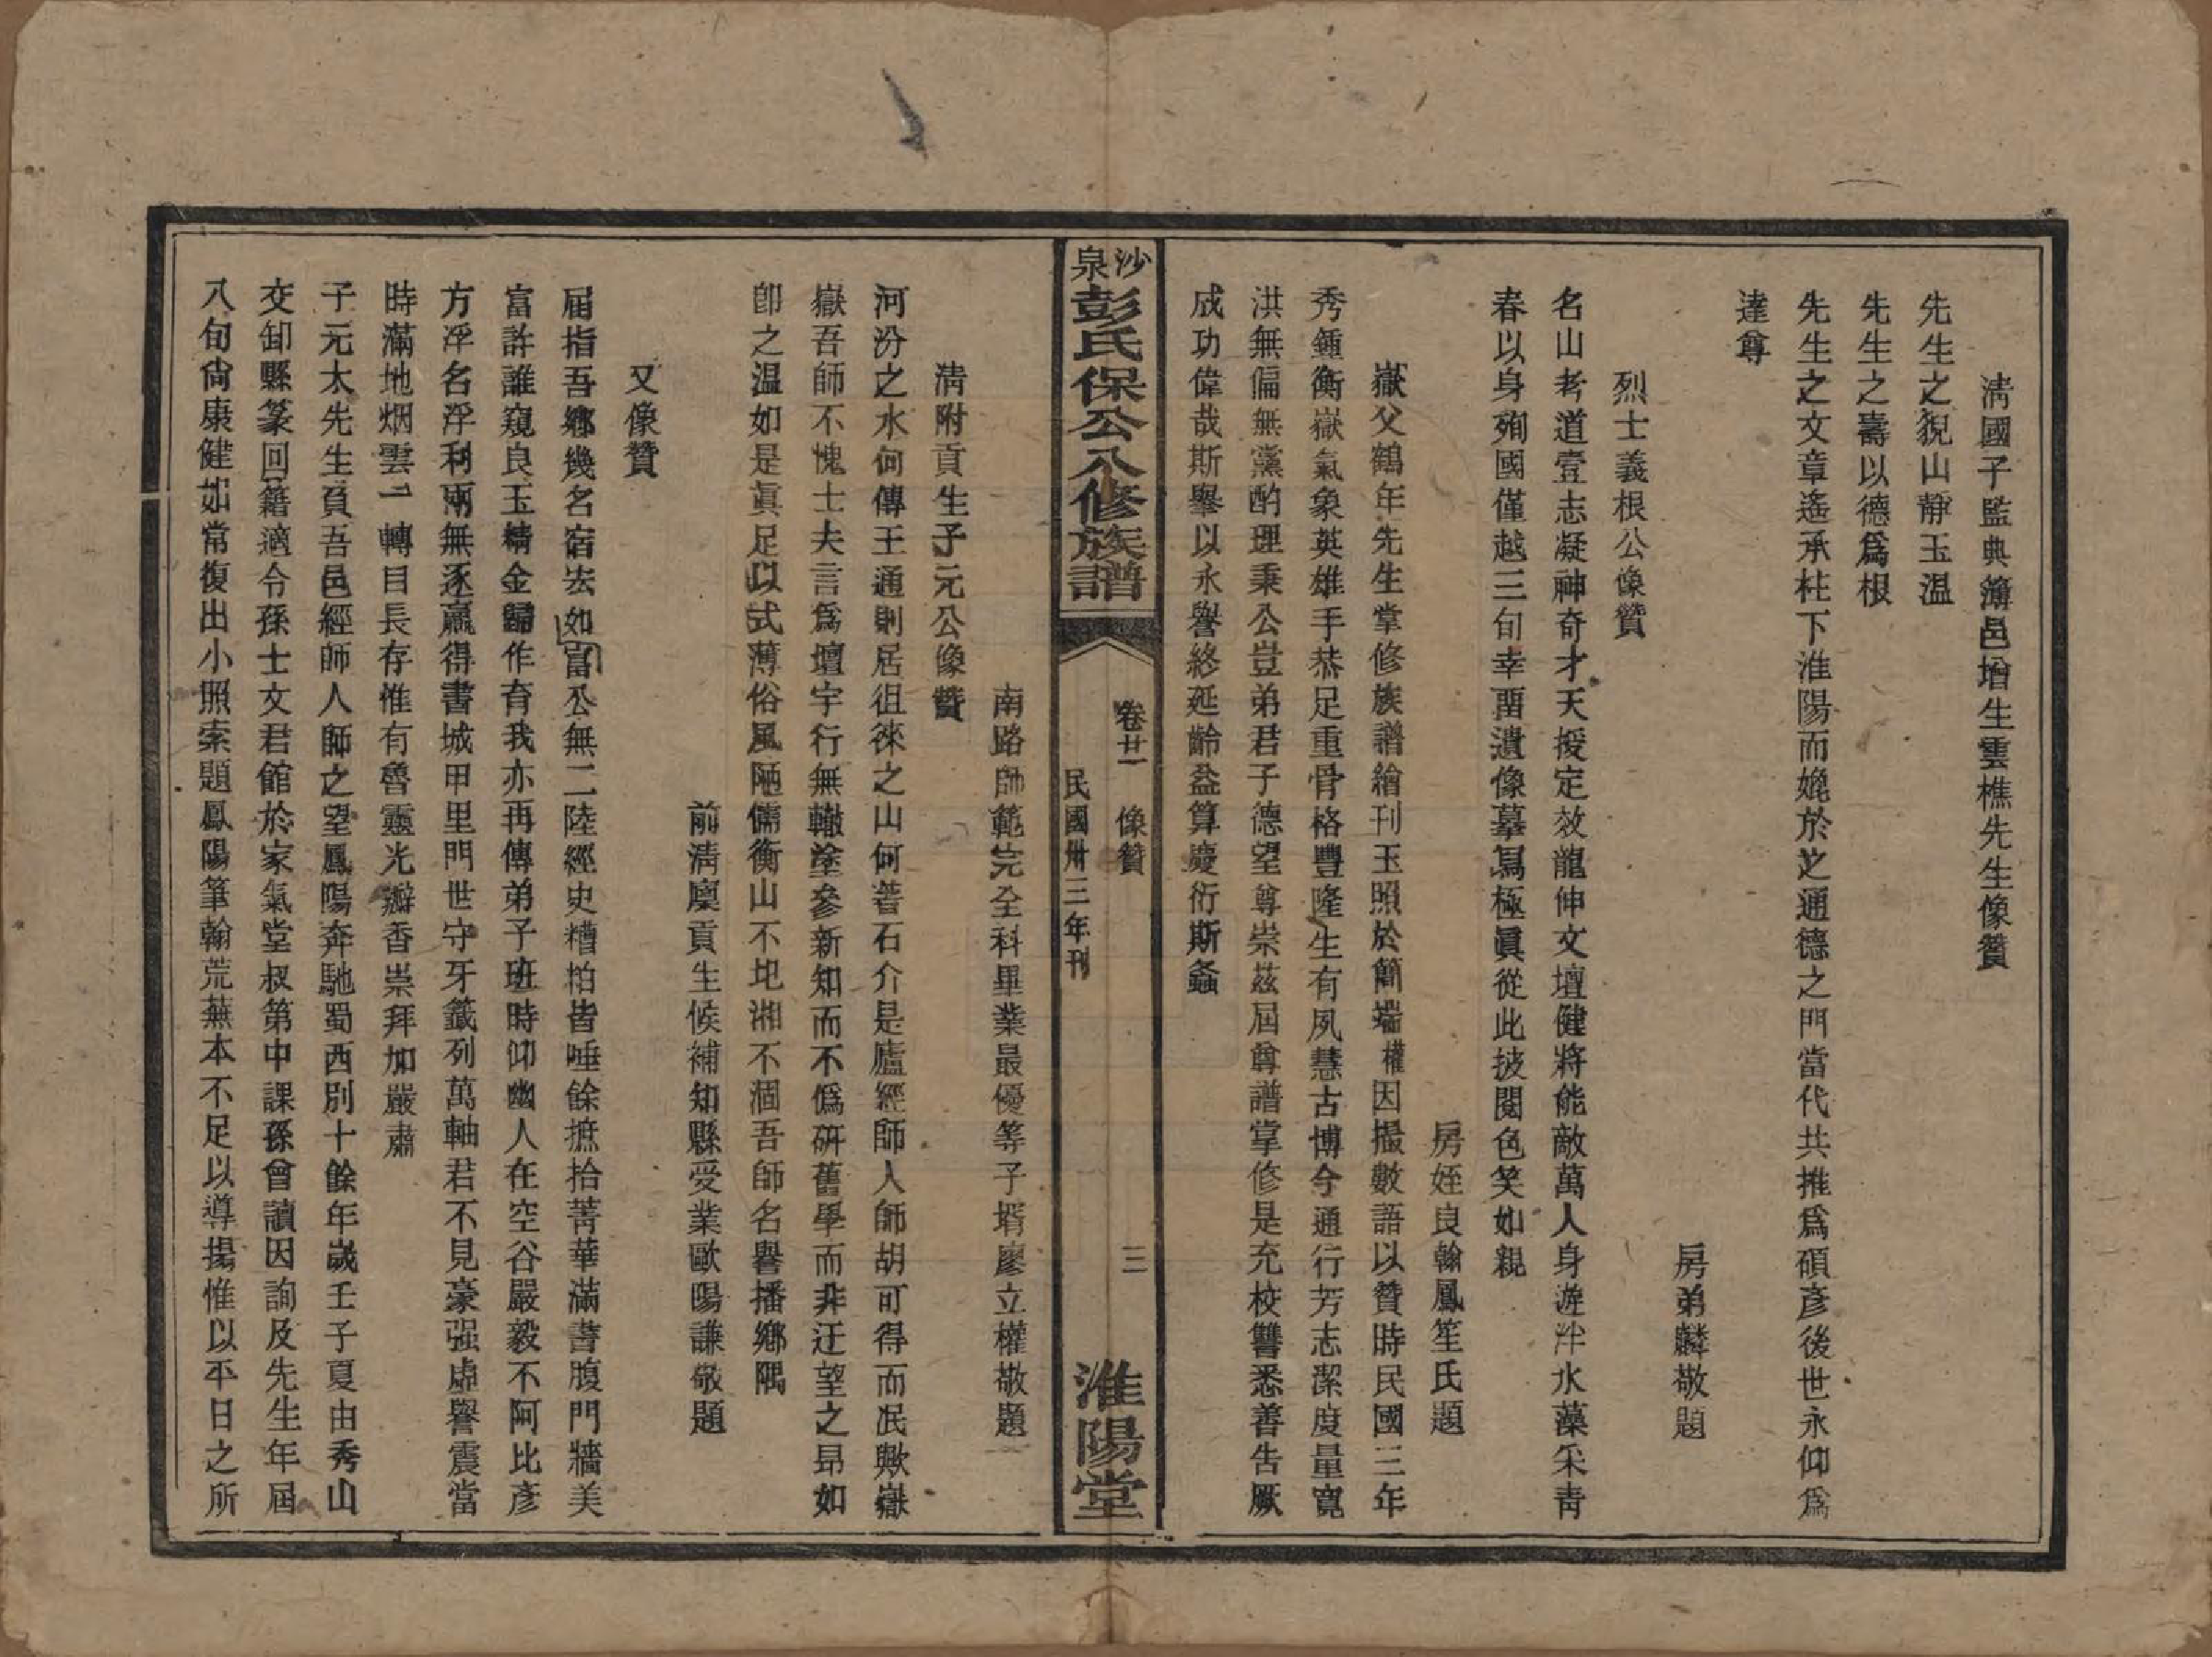 清國子監典簿邑增生雲樵先生像贊
先生之貌山靜玉温
先生之壽以德爲根
先生之文章遙承柱下淮陽而媲於之通德之門當代共推爲碩彥後世永仰爲
達尊
房弟麟敬題
烈士義根公像贊
名山考道壹志凝神奇才天授定效龍伸文壇健將能敵萬人身遊泮水藻采青
春以身殉國僅越三旬幸留遺像摹寫極眞從此披閱色笑如親
房姪良翰鳳笙氏題
嶽父鶴年先生掌修族譜繪刊玉照於簡端權因撮數語以贊時民國三年
秀鍾衡嶽氣象英雄手恭足重骨格豐隆生有夙慧古博今通行芳志潔度量寬
洪無偏無黨酌理秉公豈弟君子德望尊崇茲屆尊譜掌修是充校讐悉善告厥
成功偉哉斯舉以永譽終延齡益算慶衍斯螽
沙泉彭氏保公八修族譜
卷廿一 像贊 三
民國卅三年刊
淮陽堂
南路師範完全科畢業最優等子壻廖立權敬題
清附貢生子元公像贊
河汾之水何傳王通則居徂徠之山何著石介是廬經師人師胡可得而泯歟嶽
嶽吾師不愧士夫言爲壇宇行無轍塗參新知而不僞硏舊學而非迂望之昻如
卽之温如是眞足以式薄俗風陋儒衡山不圯湘不涸吾師名譽播鄉隅
前清廩貢生候補知縣受業歐陽謙敬題
又像贊
屈指吾鄉幾名宿去如富公無二陸經史糟粕皆唾餘摭拾菁華滿書腹門牆美
富許誰窺良玉精金歸作育我亦再傳弟子班時仰幽人在空谷嚴毅不阿比彥
方浮名浮利兩無逐贏得書城甲里門世守牙籤列萬軸君不見豪强虛譽震當
時滿地烟雲一轉目長存惟有魯靈光瓣香崇拜加嚴肅
子元太先生負吾邑經師人師之望鳳陽奔馳蜀西別十餘年歲壬子夏由秀山
交卸縣篆回籍適令孫士文君館於家氣堂叔第中課孫曾讀因詢及先生年屆
八旬尙康健如常復出小照索題鳳陽筆翰荒蕪本不足以導揚惟以平日之所